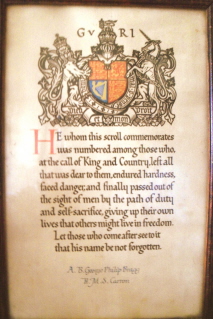 G V R I
HE whom this scroll commemorates
was numbered among those who,
at the call of King and Country, left all
that was dear to them, endured hardness,
faced danger, and finally passed out of
the sight of men by the path of duty
and self-sacrifice, giving up their own
lives that others might live in freedom.
Let those who come after see to it
that his name be not forgotten.
A. B. George Philip